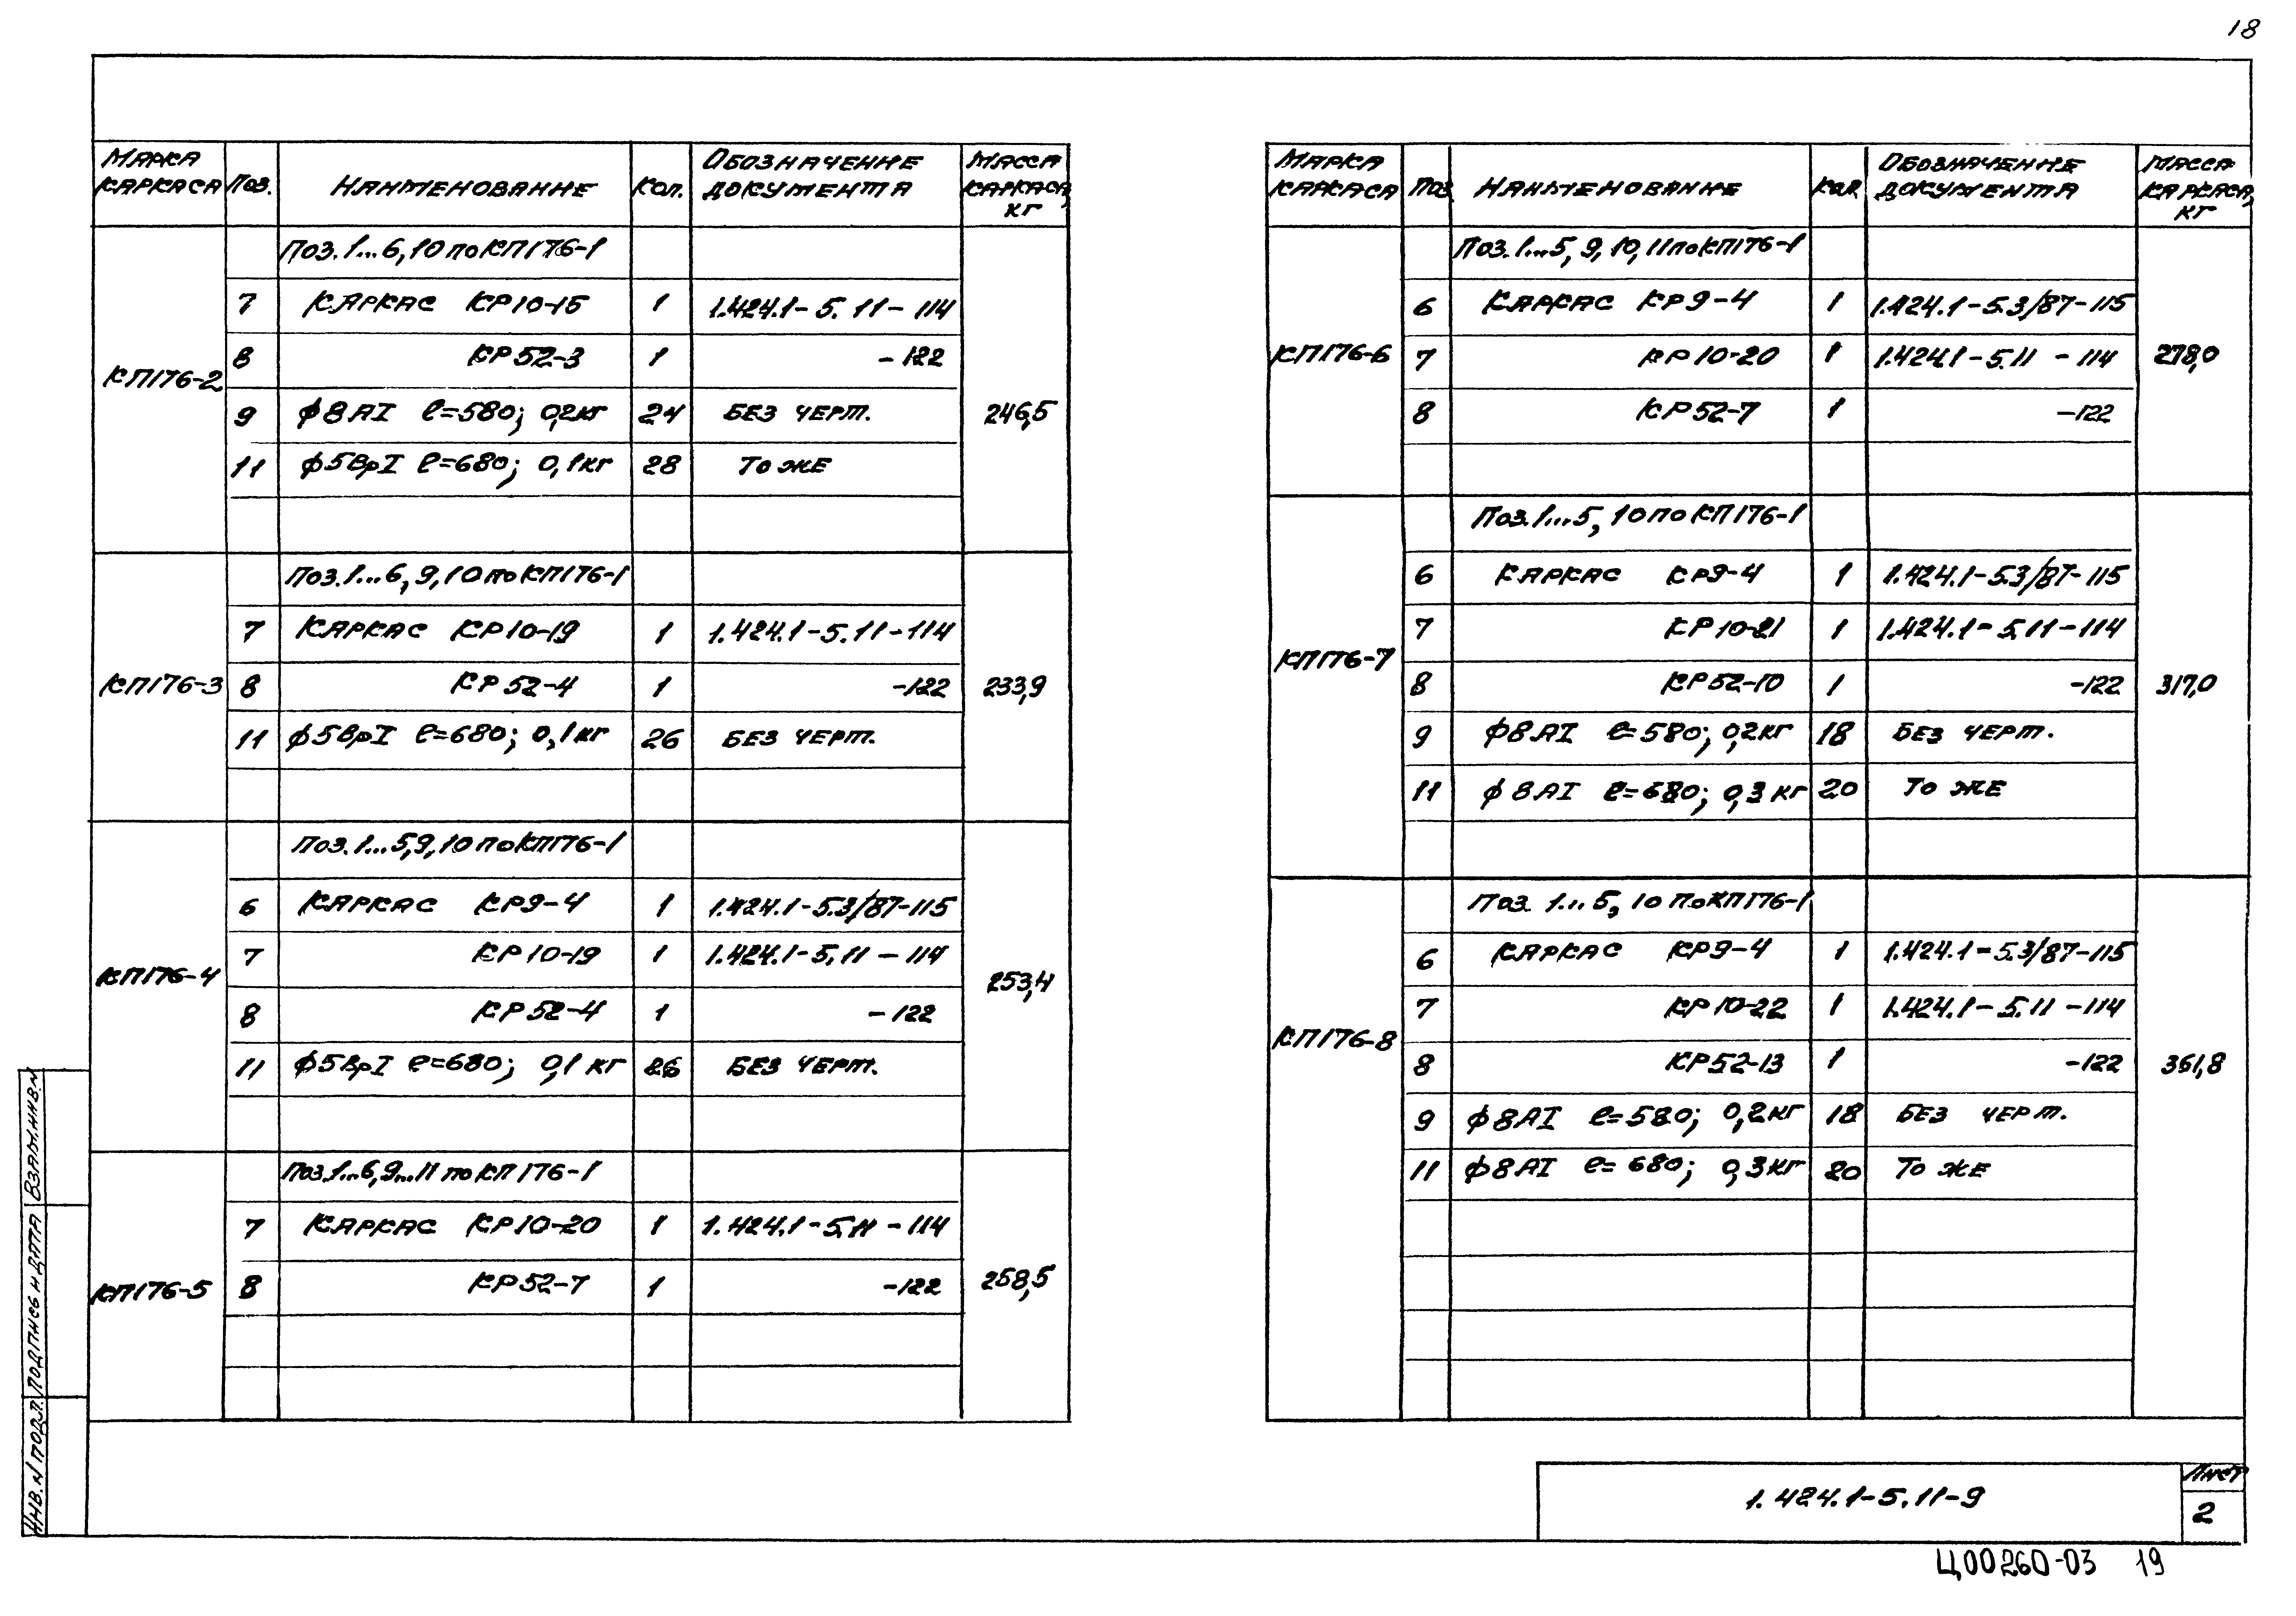 18
Марка каркаса Поз. Наименование Кол. Обозначение документа Масса каркаса, кг
Поз. 1...6, 10 по КП176-1
7 Каркас КР10-15 1 1.424.1-5.11-114
8 КР52-3 1 -122
КП176-2
9 ф8АI ℓ=580; 0,2кг 24 Без черт. 246,5
11 ф5ВрI ℓ=680; 0,1кг 28 То же
Поз. 1...6, 9, 10 по КП176-1
7 Каркас КР10-19 1 1.424.1-5.11-114
КП176-3 8 КР52-4 1 -122 233,9
11 ф5ВрI ℓ=680; 0,1кг 26 Без черт.
Поз. 1...5, 9, 10 по КП176-1
6 Каркас КР9-4 1 1.424.1-5.3/87-115
7 КР10-19 1 1.424.1-5.11-114
КП176-4 253,4
8 КР52-4 1 -122
11 ф5ВрI ℓ=680; 0,1 кг 26 Без черт.
Поз. 1...6, 9...11 по КП176-1
7 Каркас КР10-20 1 1.424.1-5.11-114
КП176-5 8 КР52-7 1 -122 258,5
Марка каркаса Поз. Наименование Кол. Обозначение документа Масса каркаса, кг
Поз. 1...5, 9, 10, 11 по КП176-1
6 Каркас КР9-4 1 1.424.1-5.3/87-115
КП176-6 7 КР10-20 1 1.424.1-5.11-114 278,0
8 КР52-7 1 -122
Поз. 1...5, 10 по КП176-1
6 Каркас КР9-4 1 1.424.1-5.3/87-115
7 КР10-21 1 1.424.1-5.11-114
КП176-7
8 КР52-10 1 -122 317,0
9 ф8АI ℓ=580; 0,2кг 18 Без черт.
11 ф8АI ℓ=680; 0,3 кг 20 То же
Поз. 1...5, 10 по КП176-1
6 Каркас КР9-4 1 1.424.1-5.3/87-115
7 КР10-22 1 1.424.1-5.11-114
КП176-8
8 КР52-13 1 -122 361,8
9 ф8АI ℓ=580; 0,2кг 18 Без черт.
11 ф8АI ℓ=680; 0,3кг 20 То же
Инв. N подл. Подпись и дата Взам. инв. N
1.424.1-5.11-9
Лист
2
Ц00260-03 19